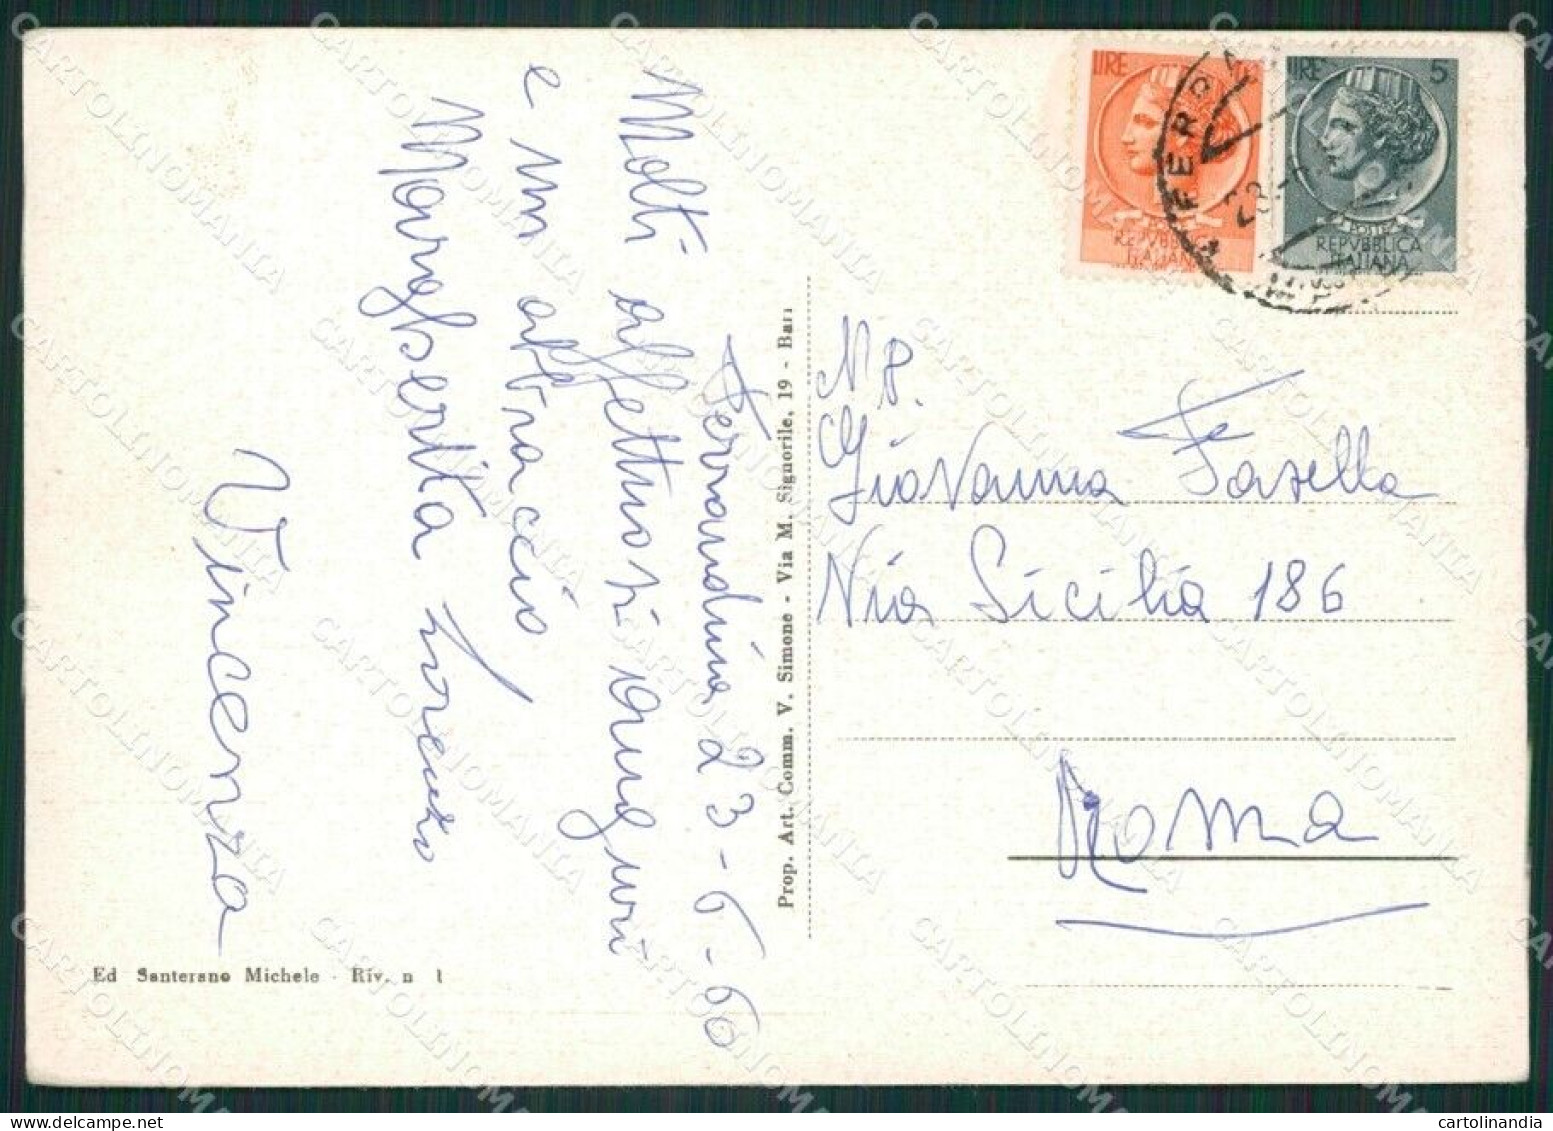 Ferrandina 23-6-60
Molti affettuosi auguri
e un abbraccio
Margherita
Vincenza
Ed Santerano Michele - Riv. n 1
Prop. Art. Comm. V. Simone - Via M. Signorile, 19 - Bari
LIRE 10
REPVBBLICA
ITALIANA
LIRE 5
REPVBBLICA
ITALIANA
Giovanna Fasella
Via Sicilia 186
Roma
CARTOLINOMANIA
cartolinandia